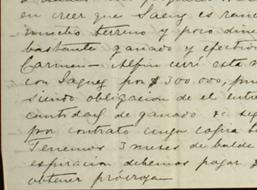 en creer que Saenz es ranc
mucho terreno y poco dine
bastante ganado y efectivo
Carmen — Alfin cerré esta n
con Saenz por $300.000, pru
siendo obligacion de el entre
cantidad de ganado &c seg
por contrato cuya copia
Tenemos 3 meses de balde
espiracion debemos pagar $
obtener próroga —